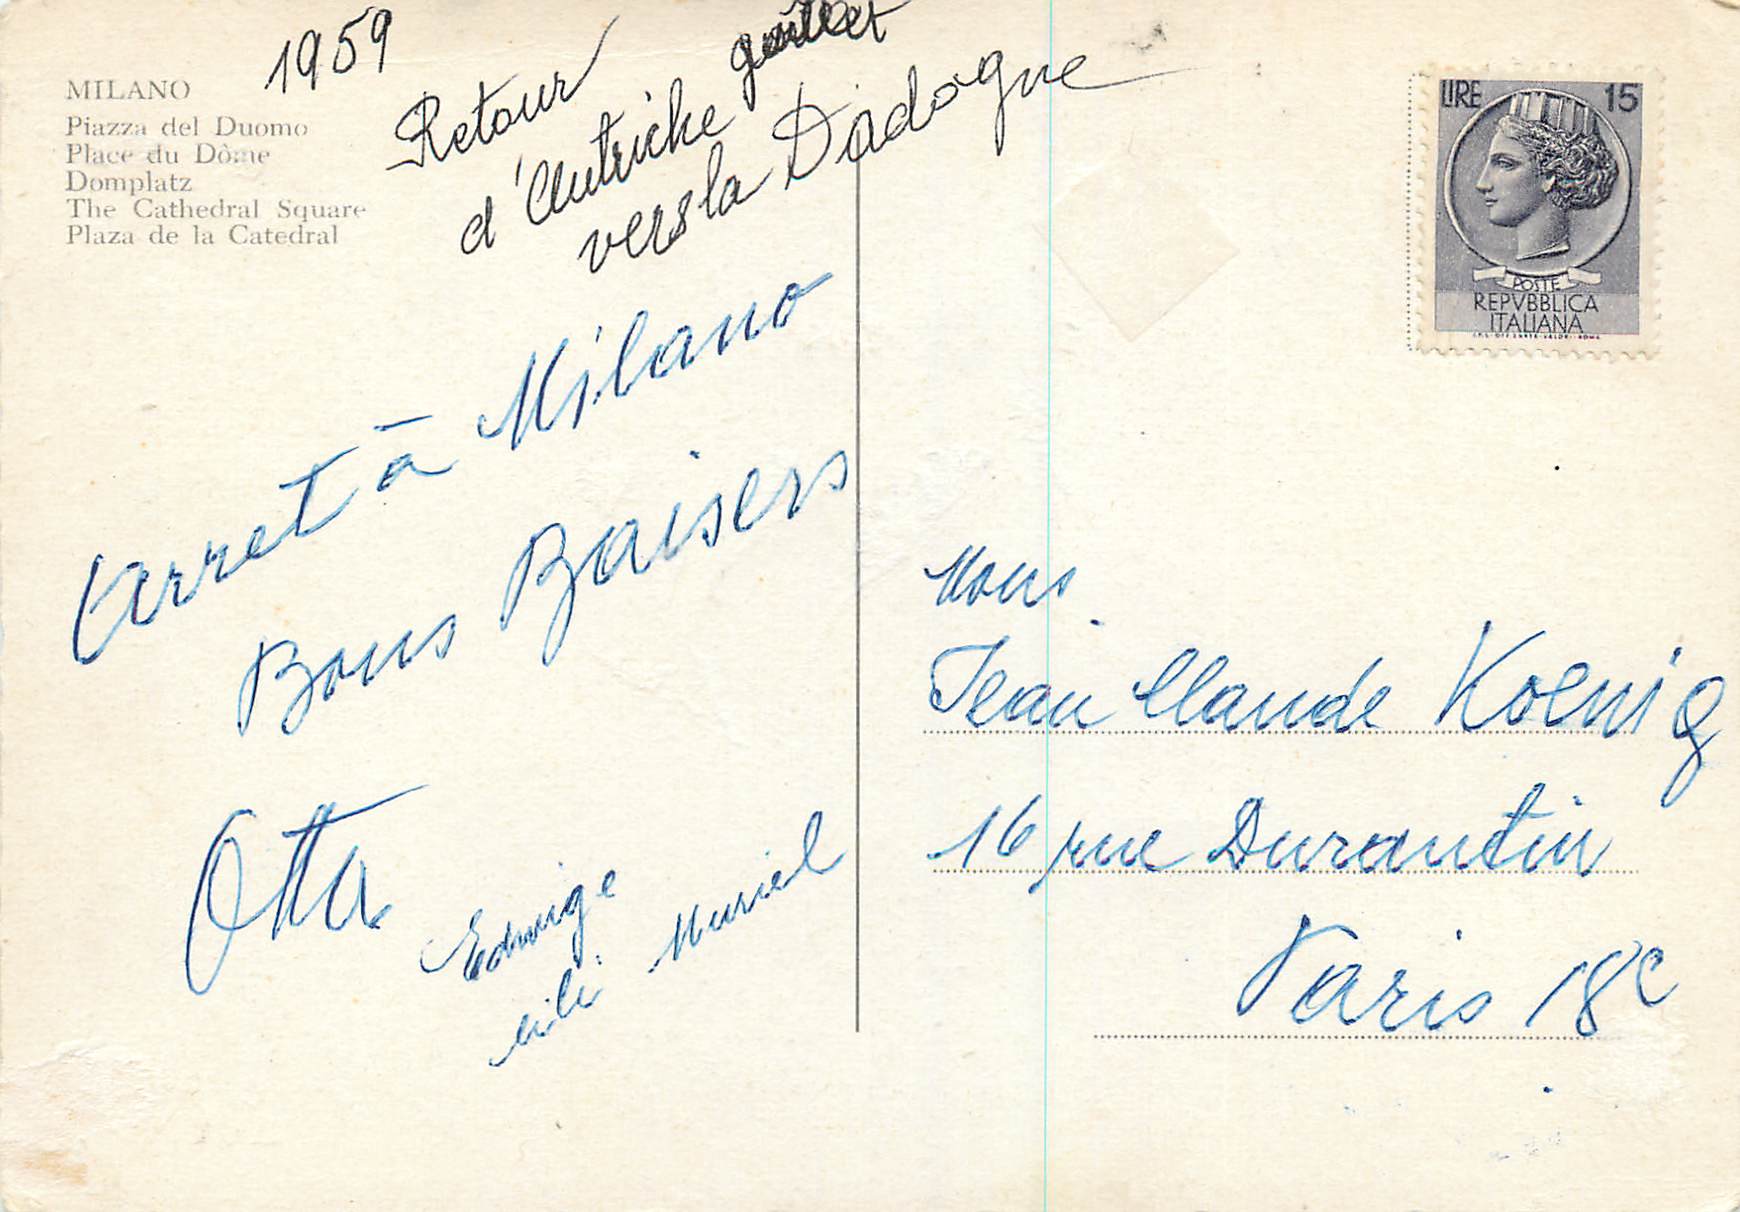 MILANO
Piazza del Duomo
Place du Dôme
Domplatz
The Cathedral Square
Plaza de la Catedral
1959
Retour
d'Autriche
vers la Dadogne
Arret à Milano
Bons Baisers
Otta
Edwige
Muriel
LIRE 15
POSTE
REPVBBLICA
ITALIANA
I.P.S.-OFF. CARTE-VALORI-ROMA
Mons
Jean Claude Koenig
16 rue Durantin
Paris 18e